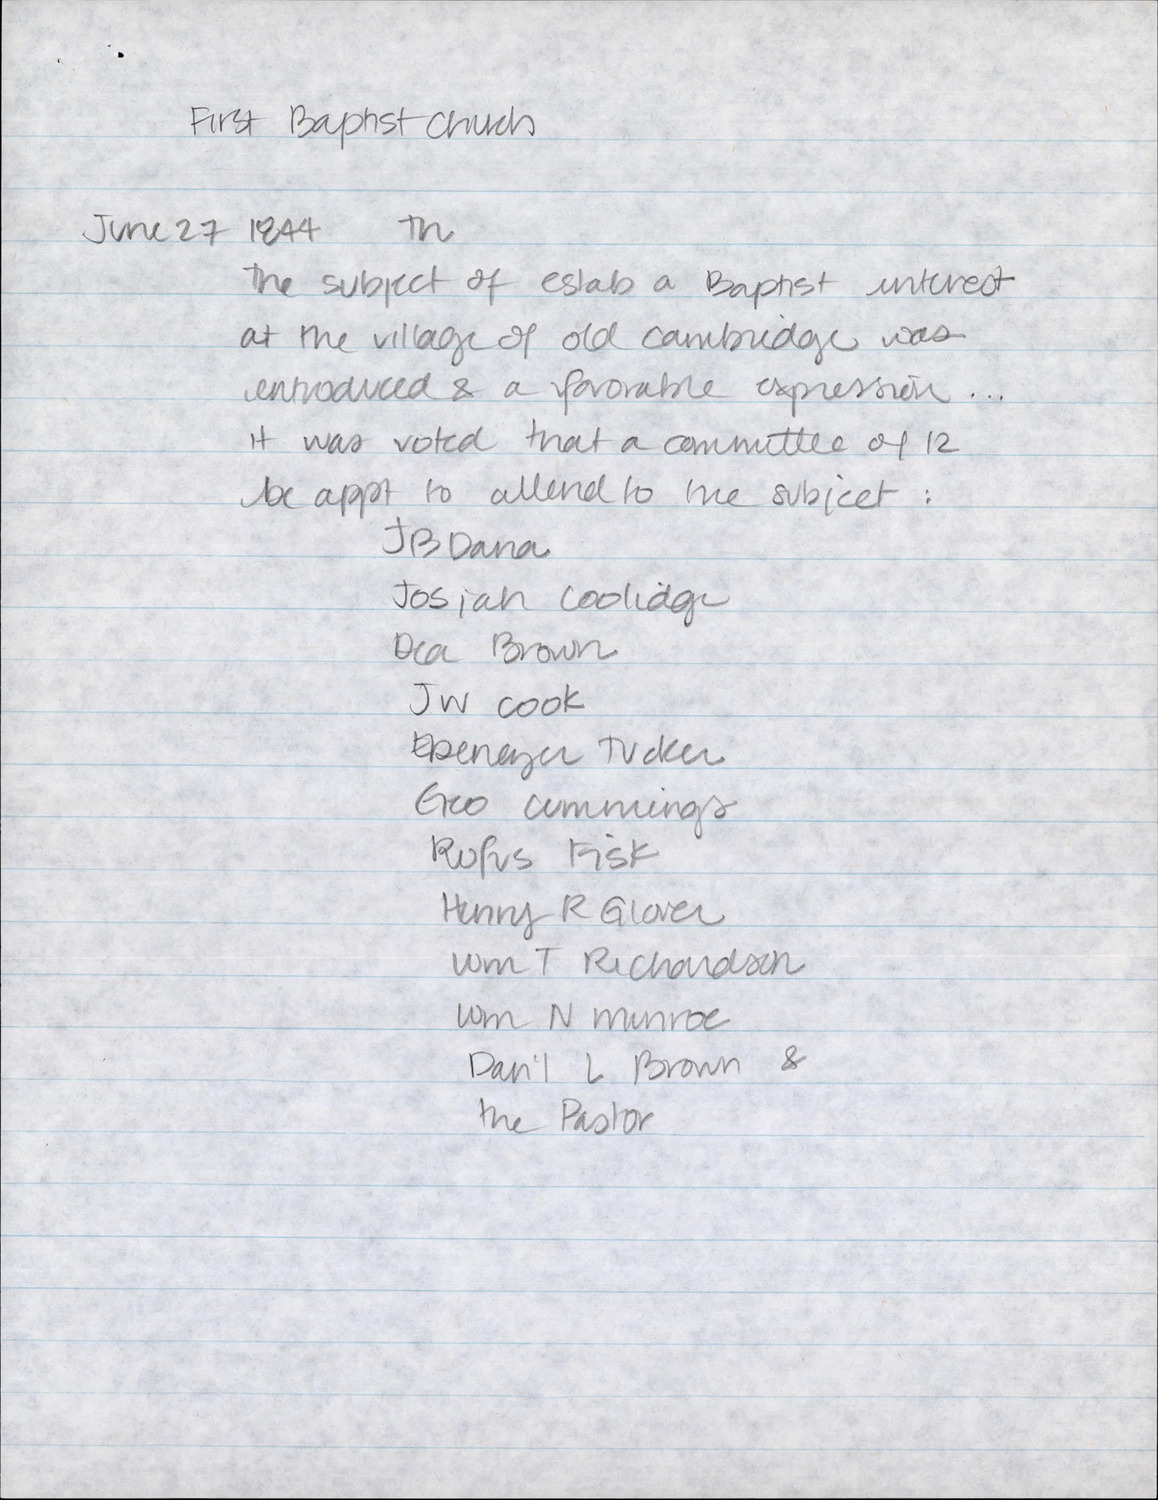 First Baptist Church
June 27 1844 Th
The subject of estab a Baptist interest
at the village of old Cambridge was
introduced & a favorable expression ...
it was voted that a committee of 12
be appt to attend to the subject :
JB Dana
Josiah Coolidge
Dea Brown
JW Cook
Ebenezer Tucker
Geo Cummings
Rufus Fisk
Henry R Glover
Wm T Richardson
Wm N Munroe
Dan'l L Brown &
the Pastor